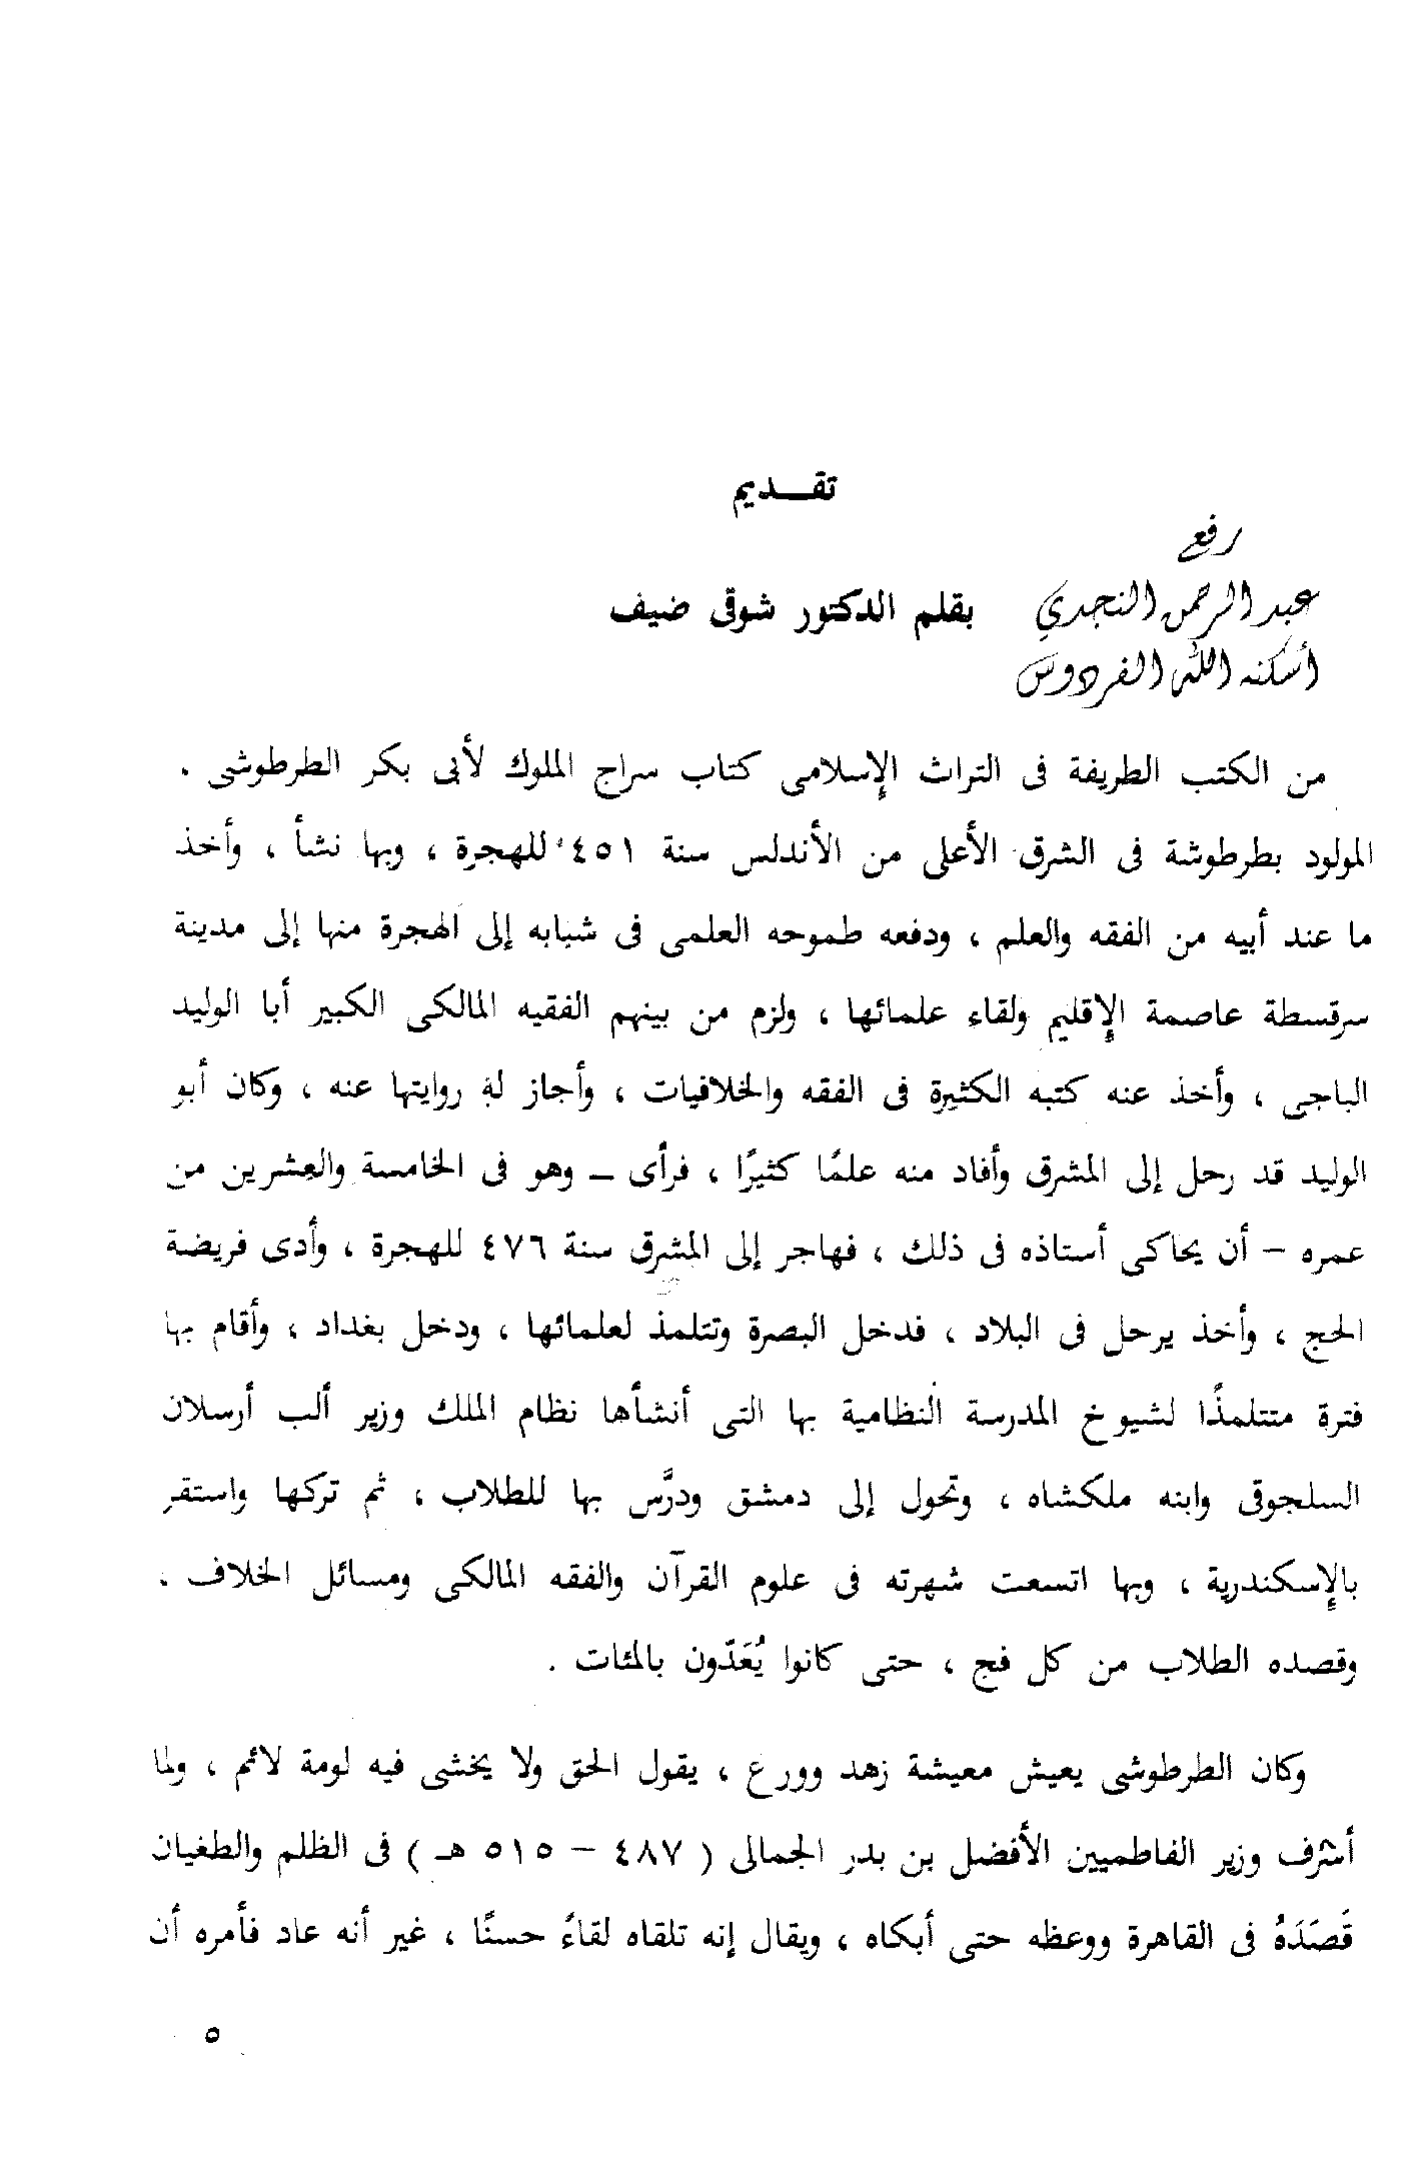 تقـديم
رفع
عبد الرحمن النجدي
أسكنه الله الفردوس
بقلم الدكتور شوقى ضيف
من الكتب الطريفة فى التراث الإسلامى كتاب سراج الملوك لأبى بكر الطرطوشى .
المولود بطرطوشة فى الشرق الأعلى من الأندلس سنة ٤٥١ للهجرة ، وبها نشأ ، وأخذ
ما عند أبيه من الفقه والعلم ، ودفعه طموحه العلمى فى شبابه إلى الهجرة منها إلى مدينة
سرقسطة عاصمة الإقليم ولقاء علمائها ، ولزم من بينهم الفقيه المالكى الكبير أبا الوليد
الباجى ، وأخذ عنه كتبه الكثيرة فى الفقه والخلافيات ، وأجاز له روايتها عنه ، وكان أبو
الوليد قد رحل إلى المشرق وأفاد منه علمًا كثيرًا ، فرأى – وهو فى الخامسة والعشرين من
عمره – أن يحاكى أستاذه فى ذلك ، فهاجر إلى المشرق سنة ٤٧٦ للهجرة ، وأدى فريضة
الحج ، وأخذ يرحل فى البلاد ، فدخل البصرة وتتلمذ لعلمائها ، ودخل بغداد ، وأقام بها
فترة متتلمذًا لشيوخ المدرسة النظامية بها التى أنشأها نظام الملك وزير ألب أرسلان
السلجوقى وابنه ملكشاه ، وتحول إلى دمشق ودرَّس بها للطلاب ، ثم تركها واستقر
بالإسكندرية ، وبها اتسعت شهرته فى علوم القرآن والفقه المالكى ومسائل الخلاف .
وقصده الطلاب من كل فج ، حتى كانوا يُعَدّون بالمئات .
وكان الطرطوشى يعيش معيشة زهد وورع ، يقول الحق ولا يخشى فيه لومة لائم ، ولما
أسرف وزير الفاطميين الأفضل بن بدر الجمالى ( ٤٨٧ – ٥١٥ هـ ) فى الظلم والطغيان
قَصَدَهُ فى القاهرة ووعظه حتى أبكاه ، ويقال إنه تلقاه لقاءً حسنًا ، غير أنه عاد فأمره أن
٥